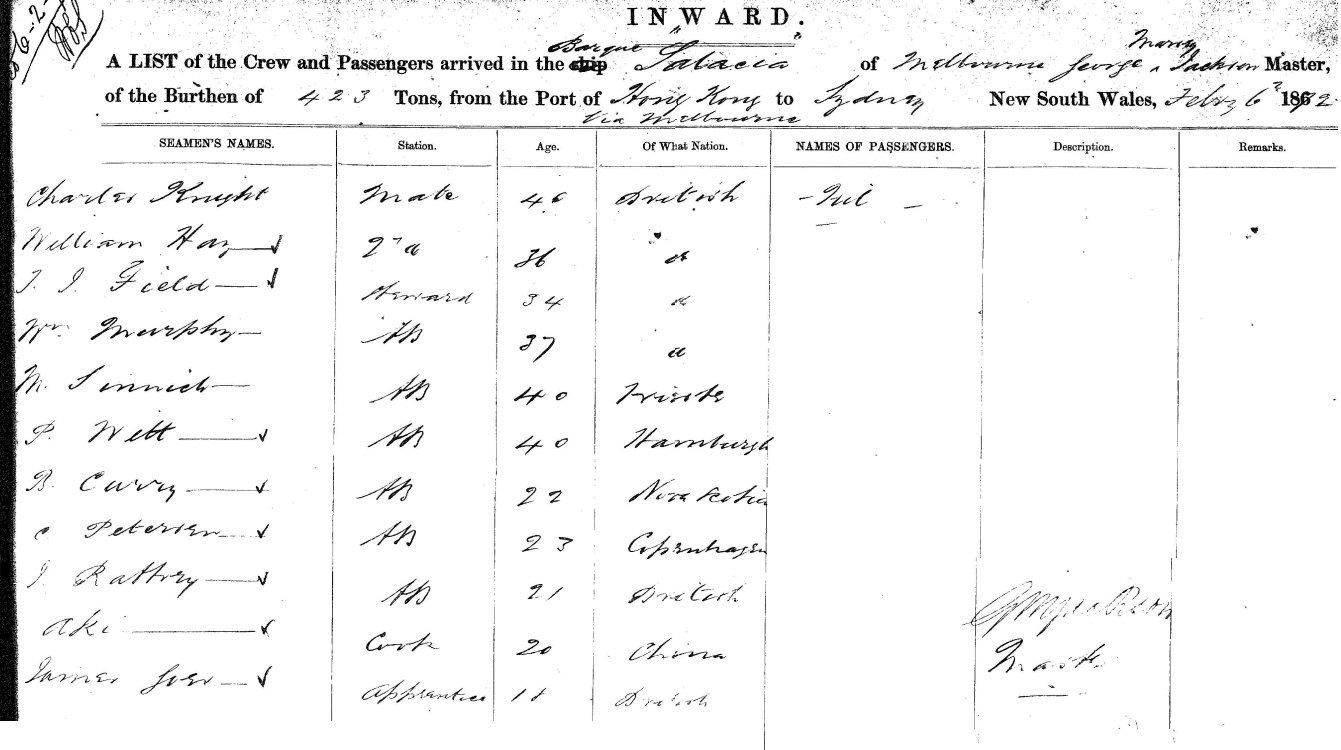 6-2-
INWARD.
A LIST of the Crew and Passengers arrived in the ship Barque "Salacia" of Melbourne George Jackson Master,
of the Burthen of 423 Tons, from the Port of Hong Kong to Sydney New South Wales, Feby 6 1872.
Via Melbourne
SEAMEN'S NAMES. Station. Age. Of What Nation. NAMES OF PASSENGERS. Description. Remarks.
Charles Knight Mate 46 British - Nil -
William Hay 2nd 36 "
T. J. Field Steward 34 "
Wm. Murphy AB 37 "
M. AB 40 Trieste
P. Witt AB 40 Hamburgh
B. Curry AB 22 Nova Scotia
C Petersen AB 23 Copenhagen
J. Rattrey AB 21 British
Aki Cook 20 China
James Apprentice 18 British
Master